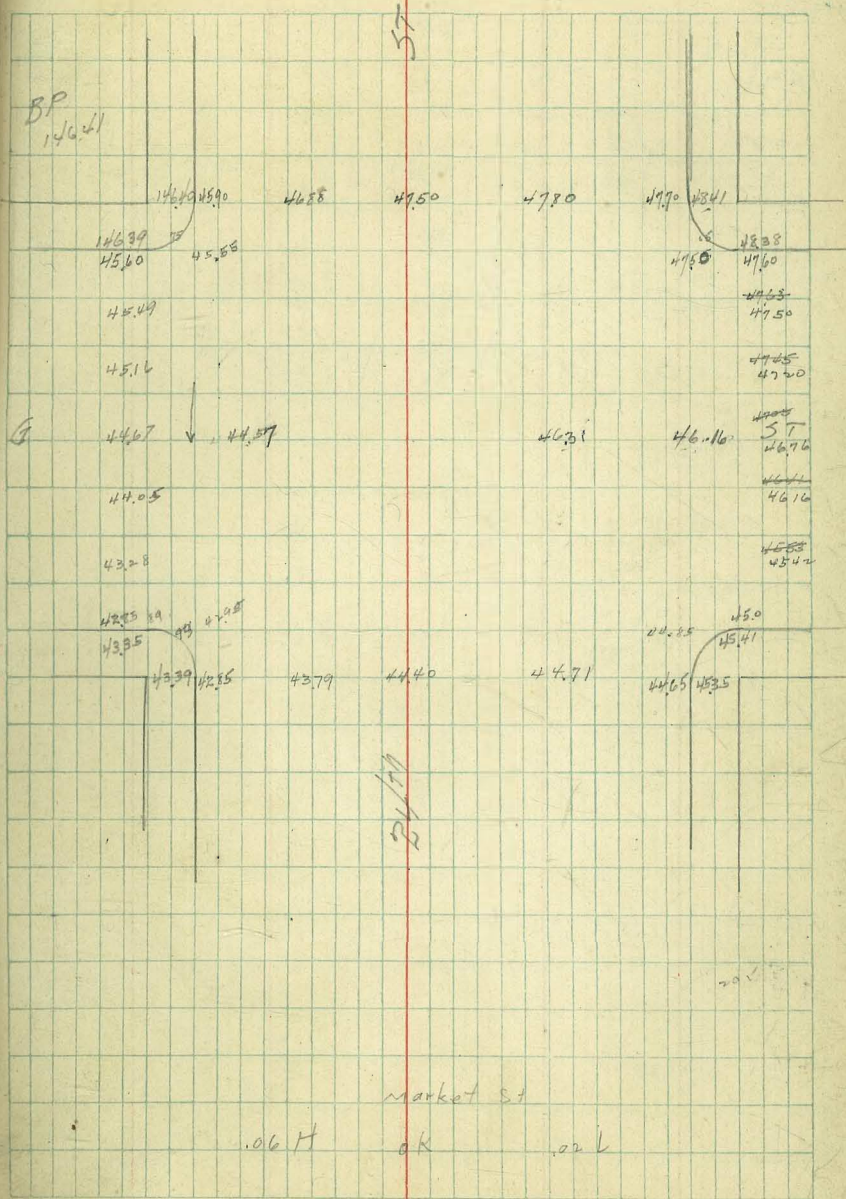 ST
BP
146.41
146.40 45.90 46.88 47.50 47.80 47.70 48.41
146.39 75 .6 48.38
45.60 45.58 47.55 47.60
47.63
45.49 47.50
45.16 47.45
47.20
G 44.67 44.57 46.31 46.16 ST
46.76
44.05 46.41
46.16
43.28 45.53
45.42
42.85 19 93 42.95 44.85 45.0
43.35 45.41
43.39 42.85 43.79 44.40 44.71 44.65 45.35
24/th
Market St
.06 H OK .02 L